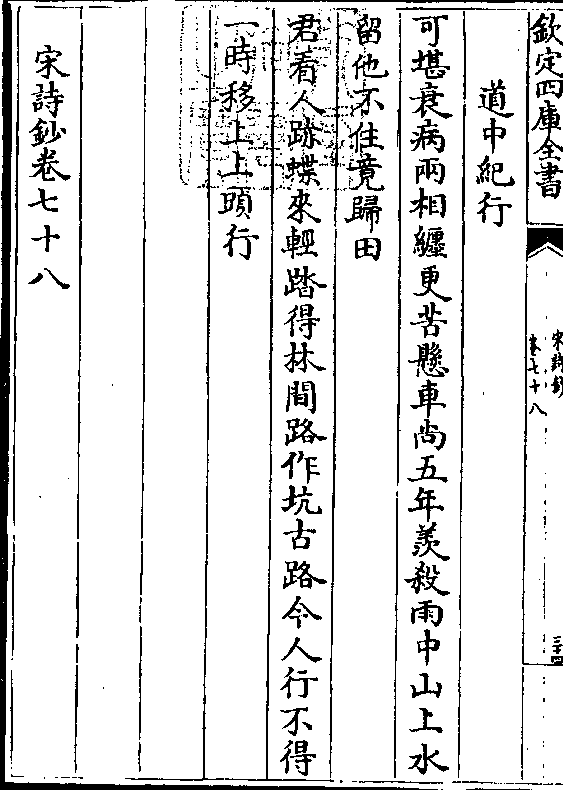 欽定四庫全書
宋詩鈔
卷七十八
三十四
道中紀行
可堪衰病兩相纒更苦懸車尚五年羨殺雨中山上水
留他不住竟歸田
君看人跡蝶來輕踏得林間路作坑古路令人行不得
一時移上上頭行
宋詩鈔卷七十八